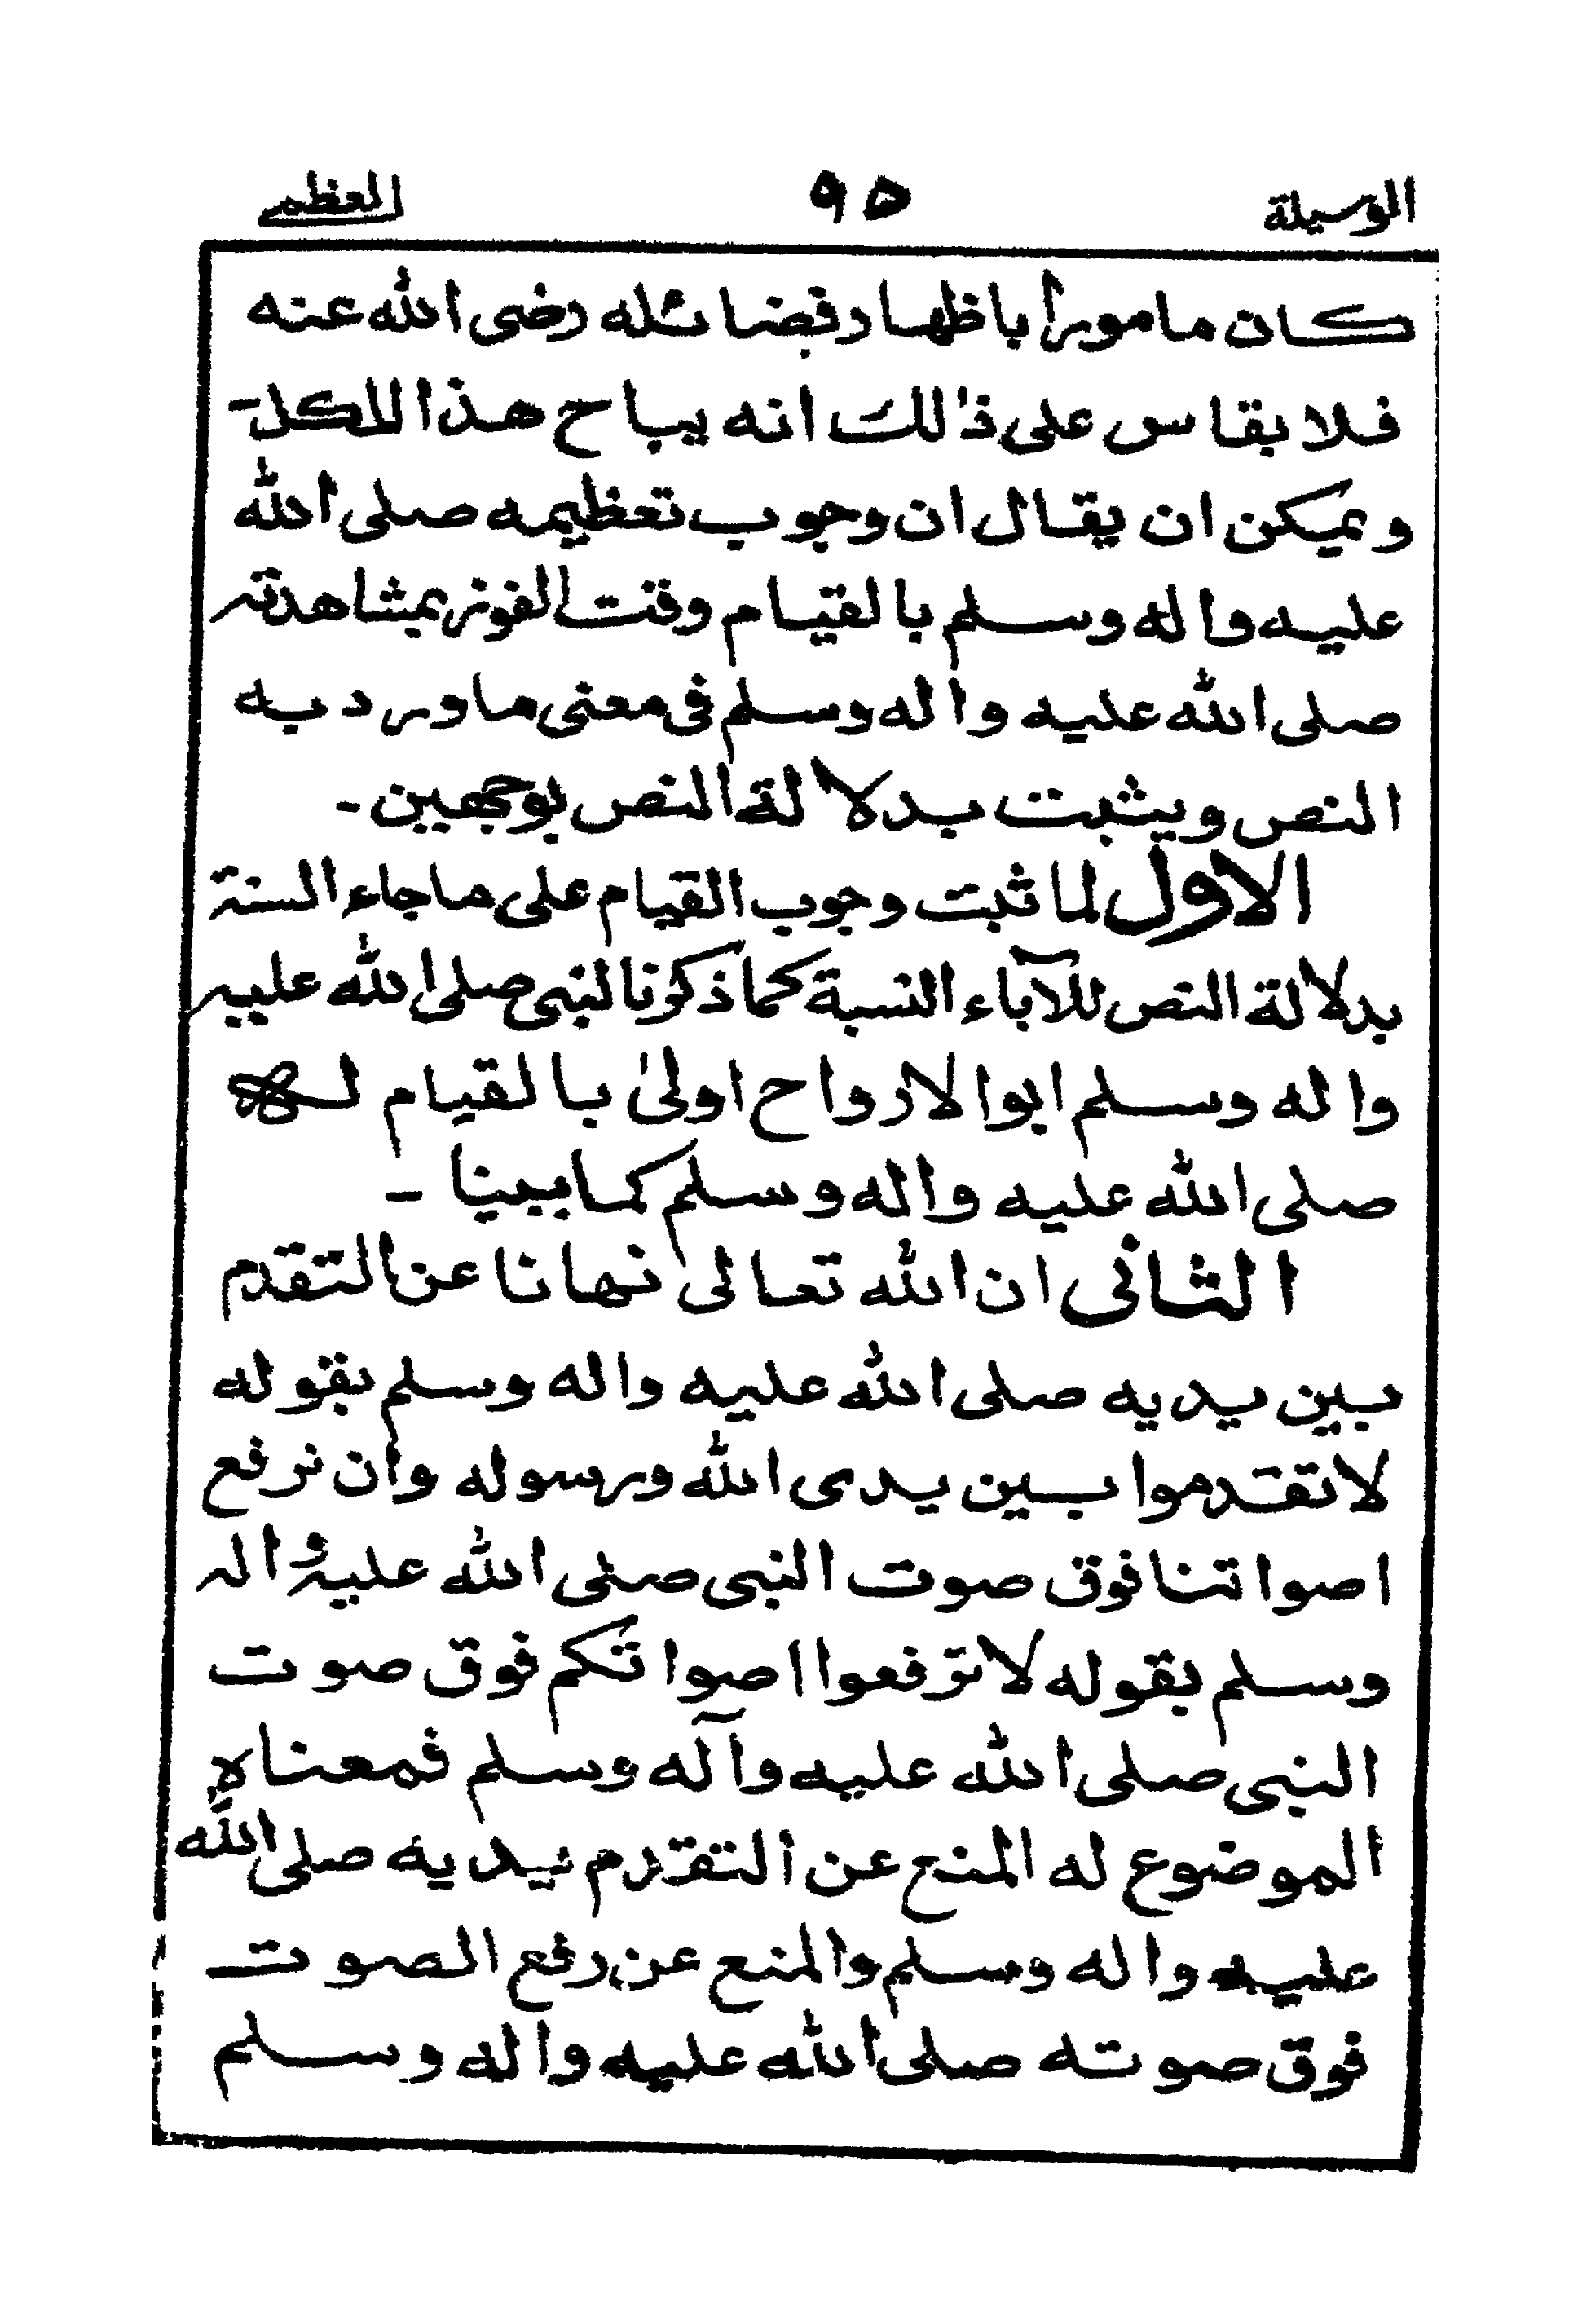 الوسيلة ٩٥ العظمى
كان مامورا باظهار فضائله رضى الله عنه
فلا يقاس على ذالك انه يباح هذا للكل -
ويمكن ان يقال ان وجوب تعظيمه صلى الله
عليه واله وسلم بالقيام وقت الفوز بمشاهدته
صلى الله عليه واله وسلم فى معنى ما ورد به
النص ويثبت بدلالة النص بوجهين -
الاول لما ثبت وجوب القيام على ما جاء السنة
بدلالة النص للآباء النسبة كما ذكرنا لنبى صلى الله عليه
واله وسلم ابوا الارواح اولىٰ بالقيام له
صلى الله عليه واله وسلم كما بينا -
الثانى ان الله تعالى نهانا عن التقدم
بين يديه صلى الله عليه واله وسلم بقوله
لا تقدموا بين يدى الله ورسوله وان نرفع
اصواتنا فوق صوت النبى صلى الله عليه واله
وسلم بقوله لا ترفعوا اصواتكم فوق صوت
النبى صلى الله عليه وآله وسلم فمعناه
الموضوع له المنع عن التقدم يديه صلى الله
عليه واله وسلم والمنع عن رفع الصوت
فوق صوته صلى الله عليه واله وسلم